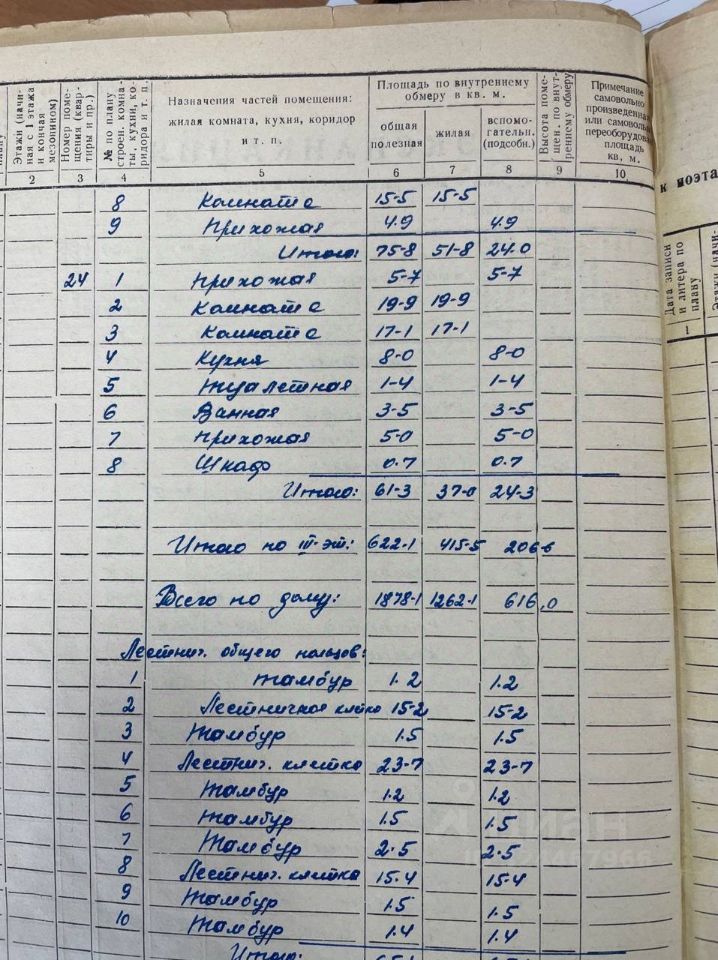 Этажи (начиная с 1 этажа и кончая мезонином)
Номер помещения (квартиры и пр.)
№ по плану строен. комнаты, кухни, коридора и т. п.
Назначения частей помещения: жилая комната, кухня, коридор и т. п.
Площадь по внутреннему обмеру в кв. м.
общая полезная
жилая
вспомогательн. (подсобн.)
Высота помещен. по внутреннему обмеру
Примечание самовольно произведенная или самовольно переоборудов. площадь кв. м.
2 3 4 5 6 7 8 9 10
8 Комната 15-5 15-5
9 Прихожая 4.9 4.9
Итого: 75-8 51-8 24.0
24 1 Прихожая 5-7 5-7
2 Комната 19-9 19-9
3 Комната 17-1 17-1
4 Кухня 8-0 8-0
5 Туалетная 1-4 1-4
6 Ванная 3-5 3-5
7 Прихожая 5-0 5-0
8 Шкаф 0.7 0.7
Итого: 61-3 37-0 24-3
Итого по III-эт: 622-1 415-5 206-6
Всего по дому: 1878-1 1262-1 616,0
Лестнич. общего пользов:
1 Тамбур 1.2 1.2
2 Лестничная клетка 15-2 15-2
3 Тамбур 1.5 1.5
4 Лестнич. клетка 23-7 23-7
5 Тамбур 1.2 1.2
6 Тамбур 1.5 1.5
7 Тамбур 2-5 2-5
8 Лестнич. клетка 15.4 15.4
9 Тамбур 1.5 1.5
10 Тамбур 1.4 1.4
Итого:
к поэта
Дата записи и литера по плану
1